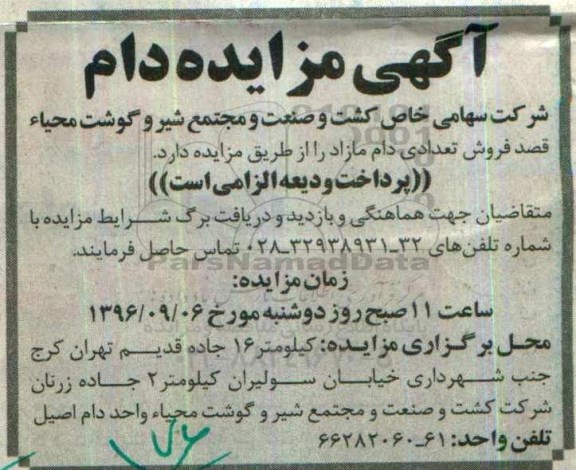 آگهی مزایده دام
شرکت سهامی خاص کشت و صنعت و مجتمع شیر و گوشت محیاء
قصد فروش تعدادی دام مازاد را از طریق مزایده دارد.
((پرداخت ودیعه الزامی است))
متقاضیان جهت هماهنگی و بازدید و دریافت برگ شرایط مزایده با
شماره تلفن‌های ۳۲-۳۲۹۳۸۹۳۱-۰۲۸ تماس حاصل فرمایند.
ParsNamadData
زمان مزایده:
ساعت ۱۱ صبح روز دوشنبه مورخ ۱۳۹۶/۰۹/۰۶
محل برگزاری مزایده: کیلومتر ۱۶ جاده قدیم تهران کرج
جنب شهرداری خیابان سولیران کیلومتر ۲ جاده زرنان
شرکت کشت و صنعت و مجتمع شیر و گوشت محیاء واحد دام اصیل
تلفن واحد: ۶۱-۶۶۲۸۲۰۶۰